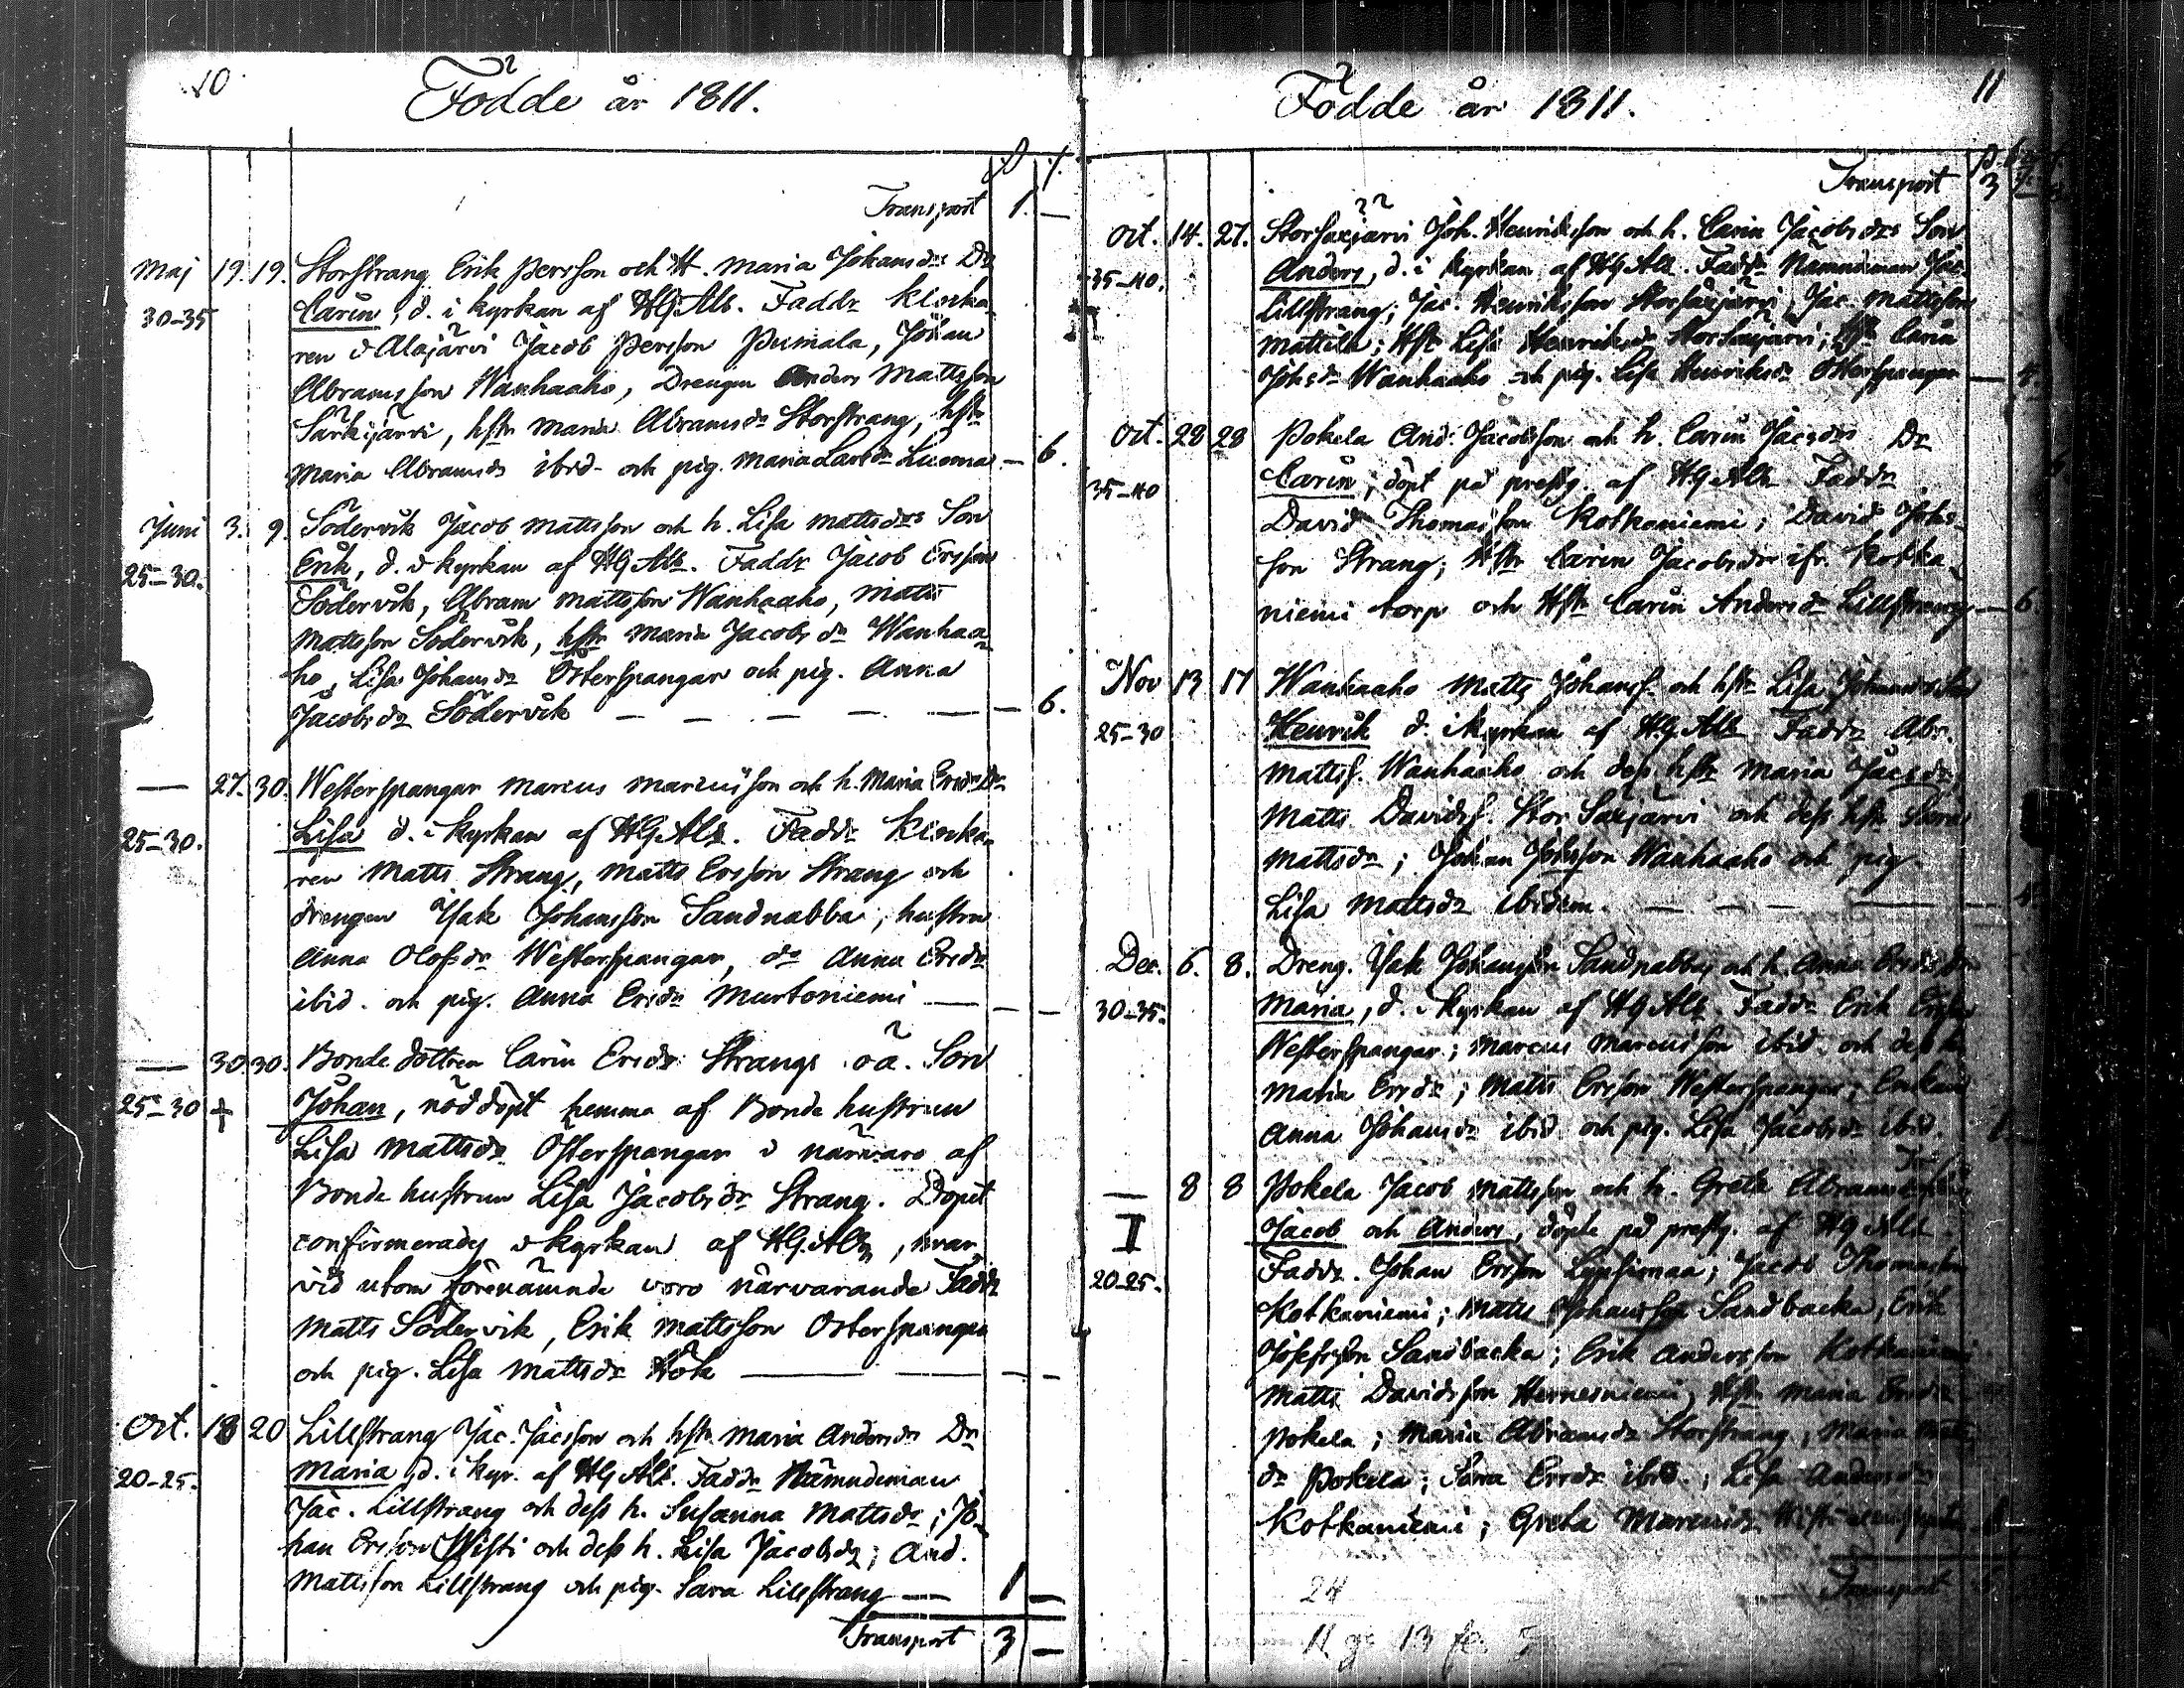 10
Födde år 1811.
Transport 1. —
Maj 19. 19. Storstrang Erik Persson och H. Maria Johansdr Dr
30-35 Carin, d. i kyrkan af HGAlb. Faddr Klocka-
ren i Alajärvi Jacob Persson Pumala, Johan
Abramsson Wanhaaho, Drengen Anders Mattsson
Särkijärvi, hstr Maria Abramsdr Storstrang, hstr
Maria Abramsdr ibid. och pig. Maria Larsdr Luoma — 6.
Juni 3. 9. Södervik Jacob Mattsson och h. Lisa Mattsdrs Son
25-30. Erik, d. i kyrkan af HGAlb. Faddr Jacob Ersson
Södervik, Abram Mattsson Wanhaaho, Matts
Mattsson Södervik, hstr Maria Jacobsdr Wanhaa-
ho, Lisa Johansdr Österspangar och pig. Anna
Jacobsdr Södervik — — — — — 6.
— 27. 30. Westerspangar Marcus Marcusson och h. Maria Ersdrs Dr
25-30. Lisa d. i kyrkan af HGAlb. Faddr Klocka-
ren Matts Strang, Matts Ersson Strang och
drengen Isak Johansson Sandnabba, hustru
Anna Olofsdr Westerspangar, do Anna Ersdr
ibid. och pig. Anna Ersdr Murtoniemi — — —
— 30. 30. Bonde dottren Carin Ersdr Strangs oä. Son
25-30 + Johan, nöddöpt hemma af Bonde hustrun
Lisa Mattsdr Österspangar i närvaro af
Bonde hustrun Lisa Jacobsdr Strang. Dopet
confirmerades i kyrkan af HGAlb, hvar
vid utom förenämnde voro närvarande Faddr
Matts Södervik, Erik Mattsson Österspangar
och pig. Lisa Mattsdr Hök — — — —
Oct. 18 20 Lillstrang Jac. Jacsson och hstr Maria Andersdr Dr
20-25. Maria, d. i kyr. af HGAlb. Faddr Nämndeman
Jac. Lillstrang och dess h. Susanna Mattsdr; Jo-
han Ersson Wisti och dess h. Lisa Jacobsdr; And.
Mattsson Lillstrang och pig. Sara Lillstrang — 1 —
Transport 3 —
11
Födde år 1811.
Transport 3
Oct. 14. 27. Storsaxjärvi Joh. Henriksson och h. Carin Jacobsdrs Son
35-40. Anders, d. i kyrkan af HGAlb. Faddr Nämndeman Jac.
Lillstrang; Jac. Henriksson Storsaxjärvi, Jac. Mattsson
Mattila; Hstr Lisa Henriksdr Storsaxjärvi; Hstr Carin
Johsdr Wanhaaho och pig. Lisa Henriksdr Österspangar — 4.
Oct. 28 28 Pokela And. Jacobsson och h. Carin Jacsdrs Dr
35-40 Carin, döpt på prestg. af HGAlb. Faddr
David Thomasson Kotkaniemi; David Johs-
son Strang; Hstr Carin Jacobsdr ifr. Kotka-
niemi torp och Hstr Carin Andersdr Lillstrang — 6
Nov 13 17 Wanhaaho Matts Johanss. och hstr Lisa Johansdrs Son
25-30 Henrik d. i kyrkan af HGAlb. Faddr Abr.
Mattss. Wanhaaho och dess hstr Maria Jacsdr;
Matts Davidss. Stor Saxjärvi och dess hstr
Mattsdr; Johan Johsson Wanhaaho och pig.
Lisa Mattsdr ibidem. — — — — 4
Dec. 6. 8. Dreng. Isak Johansson Sandnabba och h. Anna Ersdrs Dr
30-35. Maria, d. i kyrkan af HGAlb. Faddr Erik Ersson
Westerspangar; Marcus Marcusson ibid. och dess h.
Maria Ersdr; Matts Ersson Westerspangar; Enkan
Anna Johansdr ibid. och pig. Lisa Jacobsdr ibid.
— 8 8 Pokela Jacob Mattsson och h. Greta
II Jacob och Anders, döpte på prestg. af HGAlb.
20-25. Faddr. Johan Ersson; Jacob Thomasson
Kotkaniemi; Matts Johansson Sandbacka, Erik
Josefsson Sandbacka; Erik Andersson Kotkaniemi
Matts Davidsson Hernesniemi; Hstr Maria Ersdr
Pokela; Maria Abramsdr Storstrang; Maria Matts-
dr Pokela; Sara Ersdr ibid.; Lisa Andersdr
Kotkaniemi; Greta Marcusdr
Transport
24
11 13